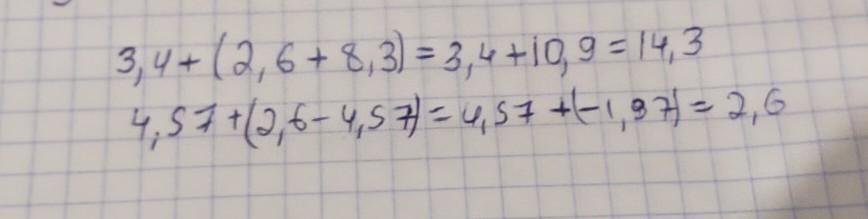 3,4+(2,6+8,3)=3,4+10,9=14,3
4,57+(2,6-4,57)=4,57+(-1,97)=2,6